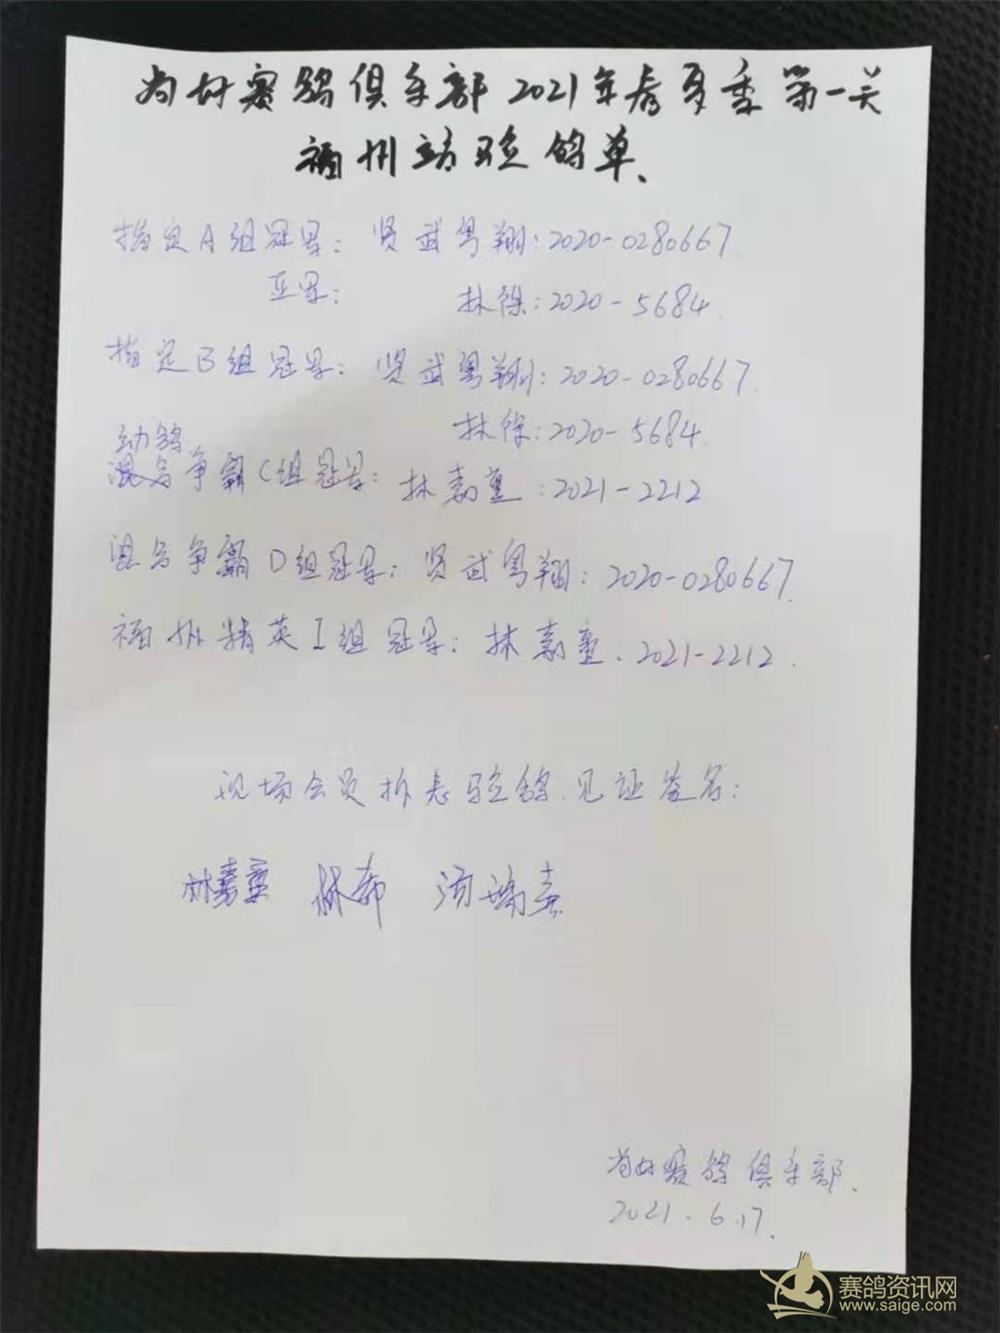 尚好赛鸽俱乐部2021年春夏季第一关
福州站验鸽单、
指定A组冠军：贤武粤翔：2020-0280667
亚军：林保：2020-5684.
指定B组冠军：贤武粤翔：2020-0280667.
林保：2020-5684
幼鸽
混合争霸C组冠军：林嘉童：2021-2212
混合争霸D组冠军：贤武粤翔：2020-0280667.
福州精英I组冠军：林嘉童.2021-2212.
现场会员拆卷验鸽.见证签名：
林嘉童 林希 汤瑞
尚好赛鸽俱乐部、
2021.6.17.
赛鸽资讯网
www.saige.com